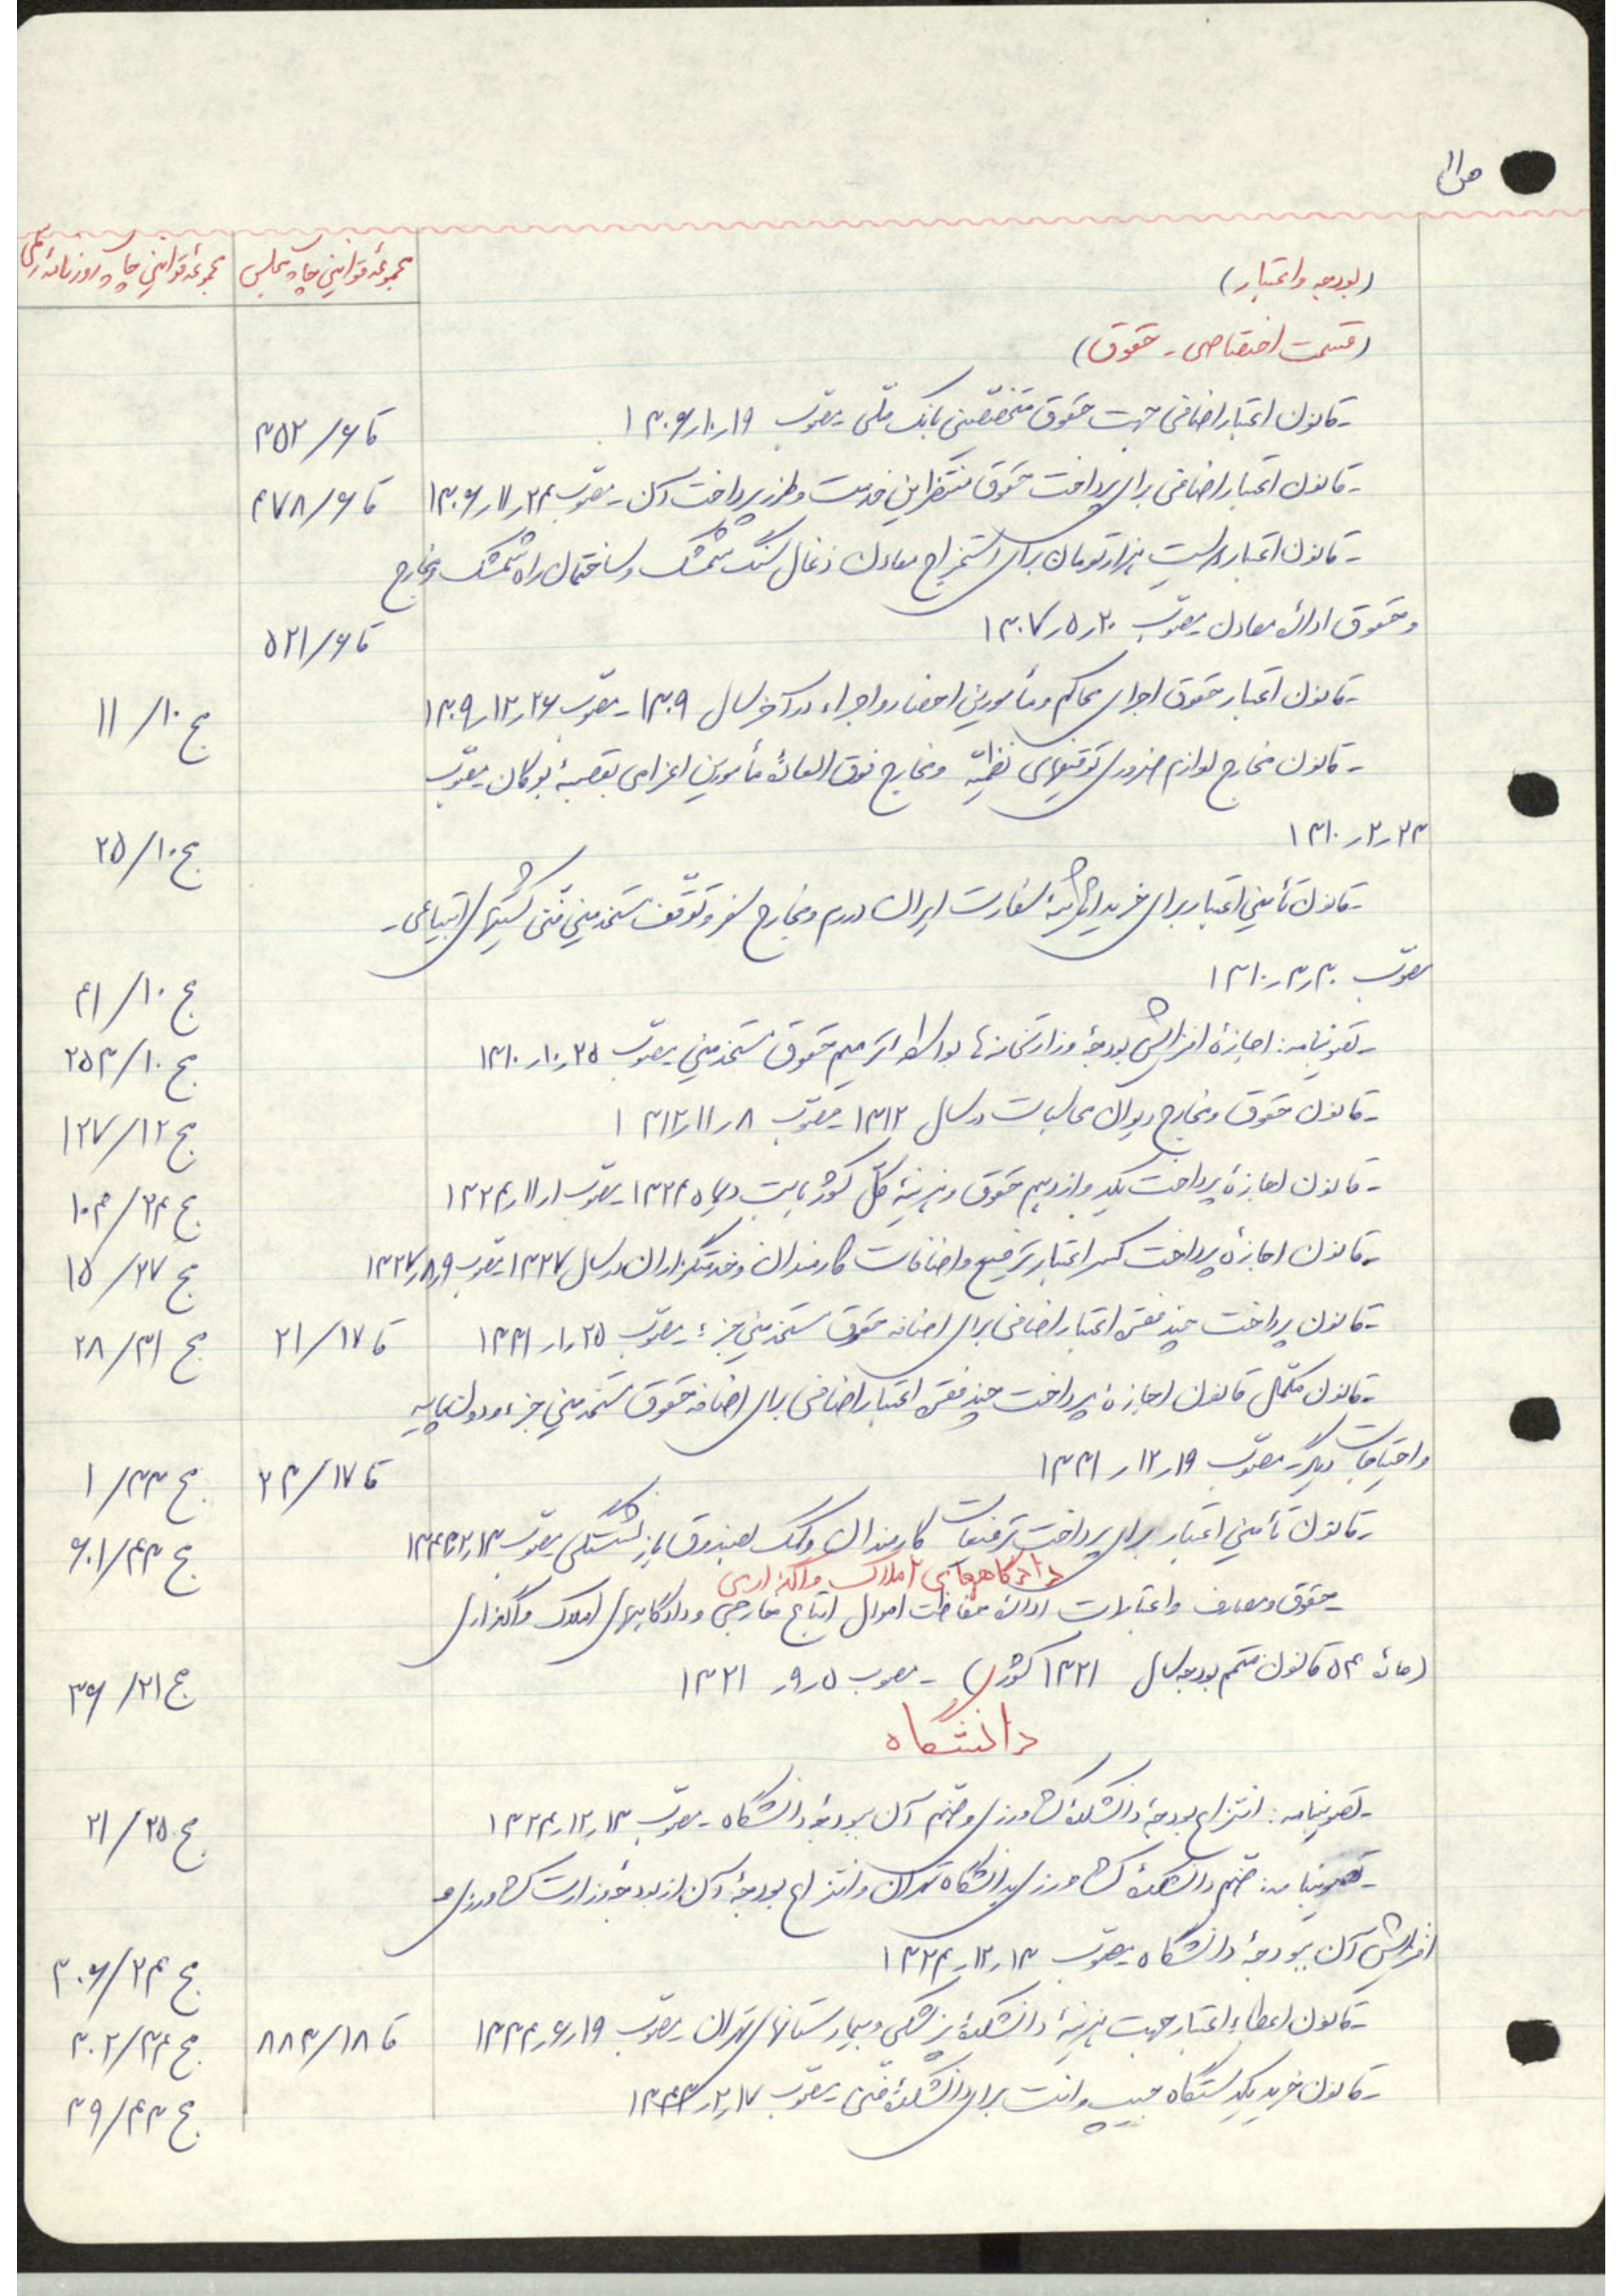 ص ۱۱
مجموعهٔ قوانین چاپ مجلس
مجموعهٔ قوانین چاپ روزنامهٔ رسمی
(بودجه و اعتبار)
(قسمت اختصاصی - حقوق)
-قانون اعتبار اضافی جهت حقوق متخصصین بانک ملّی -مصوّب ۱۹ر۱۰ر۱۳۰۶ قا ۶/ ۴۵۲
-قانون اعتبار اضافی برای پرداخت حقوق منتظرین خدمت و طرز پرداخت آن -مصوّب ۲۴ر۱۱ر۱۳۰۶ قا ۶/ ۴۷۸
-قانون اعتبار بیست هزار تومان برای استخراج معادن ذغال سنگ شمشک و ساختمان راه شمشک و مخارج
و حقوق ادارهٔ معادن -مصوّب ۲۰ر۵ر۱۳۰۷ قا ۶/ ۵۲۱
-قانون اعتبار حقوق اجرای محاکم و مأمورین احضار و اجراء در آخر سال ۱۳۰۹ -مصوّب ۲۶ر۱۲ر۱۳۰۹ مج ۱۰/ ۱۱
-قانون مخارج لوازم ضروری توقیفهای نظمیّه و مخارج فوق العادهٔ مأمورین اعزامی بقصبهٔ بوکان -مصوّب
۲۳ر۲ر۱۳۱۰ مج ۱۰/ ۲۵
-قانون تأمین اعتبار برای خرید اثاثیهٔ سفارت ایران در رم و مخارج سفر و توقّف مستخدمین فنّی کشتیهای ابتیاعی -
مصوّب ۳۰ر۳ر۱۳۱۰ مج ۱۰/ ۴۱
-تصویبنامه: اجازهٔ افزایش بودجهٔ وزارتخانه‌ها بواسطه ترمیم حقوق مستخدمین -مصوّب ۲۵ر۱۰ر۱۳۱۰ مج ۱۰/ ۲۵۳
-قانون حقوق و مخارج دیوان محاسبات در سال ۱۳۱۲ -مصوّب ۸ر۱۱ر۱۳۱۲ مج ۱۲/ ۱۲۷
-قانون اجازهٔ پرداخت یکدوازدهم حقوق و هزینهٔ کلّ کشور بابت دیماه ۱۳۲۴ -مصوّب ۱ر۱۱ر۱۳۲۴ مج ۲۴/ ۱۰۴
-قانون اجازهٔ پرداخت کسر اعتبار ترفیع و اضافات کارمندان و خدمتگزاران در سال ۱۳۲۷ -مصوّب ۹ر۸ر۱۳۲۷ مج ۲۷/ ۱۵
-قانون پرداخت چند فقره اعتبار اضافی برای اضافه حقوق مستخدمین جزء -مصوّب ۲۵ر۱ر۱۳۳۱ قا ۱۷/ ۲۱ مج ۳۱/ ۲۸
-قانون مکمّل قانون اجازهٔ پرداخت چند فقره اعتبار اضافی برای اضافه حقوق مستخدمین جزء و دون پایه
و احتیاجات دیگر -مصوّب ۱۹ر۱۲ر۱۳۳۱ قا ۱۷/ ۲۳ مج ۳۳/ ۱
-قانون تأمین اعتبار برای پرداخت ترفیعات کارمندان و کمک بصندوق بازنشستگی -مصوّب مج ۴۳/ ۶۰۱
دادگاههای املاک واگذاری
-حقوق و مصارف و اعتبارات ادارهٔ حفاظت اموال اتباع خارجی و دادگاههای املاک واگذاری
(مادهٔ ۵۴ قانون متمم بودجه سال ۱۳۲۱ کشور) - مصوب ۵ر۹ر۱۳۲۱ مج ۲۱/ ۳۶
دانشگاه
-تصویبنامه: انتزاع بودجهٔ دانشکدهٔ کشاورزی و ضمّ آن ببودجهٔ دانشگاه -مصوّب ۱۳ر۱۲ر۱۳۲۴ مج ۲۵/ ۲۱
-تصویبنامه: ضمّ دانشکدهٔ کشاورزی بدانشگاه تهران و انتزاع بودجهٔ آن از بودجهٔ وزارت کشاورزی و
افزایش آن ببودجهٔ دانشگاه -مصوّب ۱۳ر۱۲ر۱۳۲۴ مج ۲۴/ ۳۰۶
-قانون اعطاء اعتبار جهت هزینهٔ دانشکدهٔ پزشکی و بیمارستانهای تهران -مصوّب ۱۹ر۶ر۱۳۳۴ قا ۱۸/ ۸۸۳ مج ۳۴/ ۳۰۲
-قانون خرید یکدستگاه جیپ وانت برای دانشکدهٔ فنّی -مصوّب ۱۷ر۲ر۱۳۴۳ مج ۴۳/ ۳۹